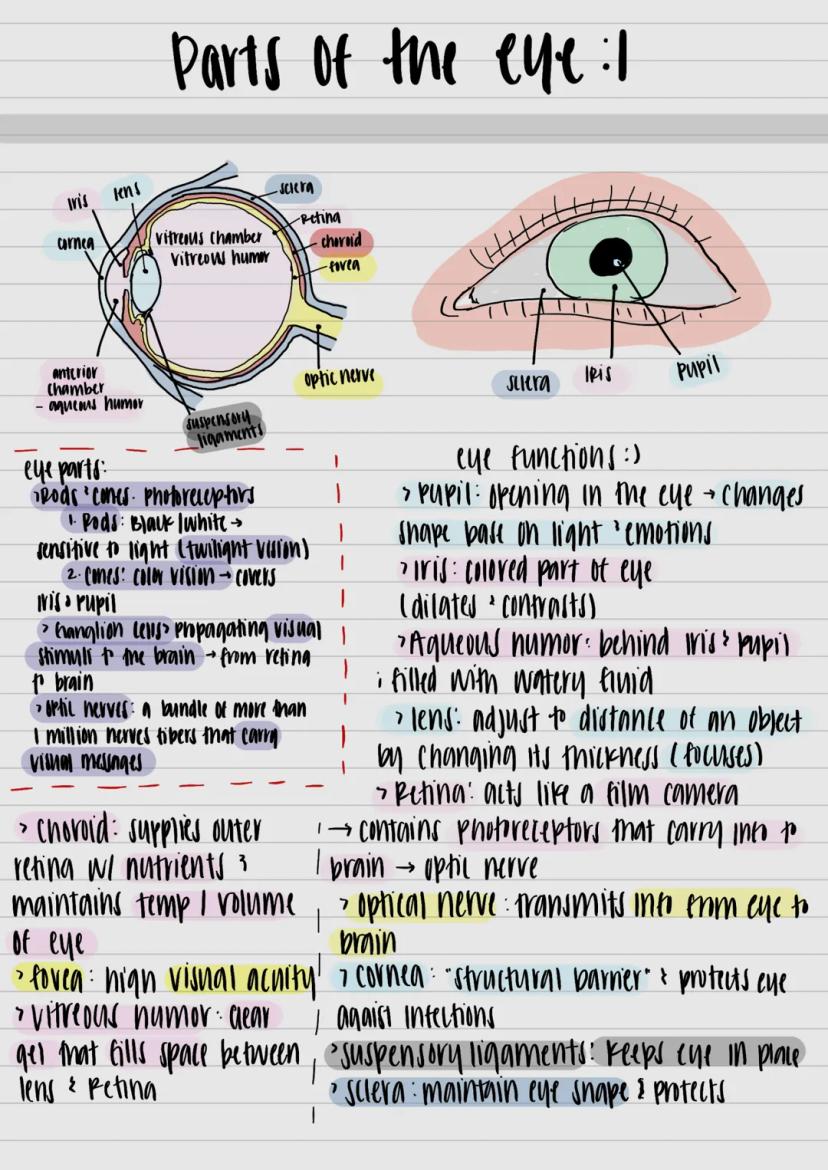 Parts of the eye :)
iris
lens
sclera
cornea
vitreous chamber
vitreous humor
Retina
choroid
fovea
anterior
chamber
- aqueous humor
suspensory
ligaments
optic nerve
sclera
Iris
Pupil
eye parts:
> Rods & cones: photoreceptors
1. Rods: Black/white →
sensitive to light (twilight vision)
2. cones: color vision → covers
iris & pupil
> Ganglion cells > propagating visual
stimuli to the brain → from retina
to brain
> optic nerves: a bundle of more than
1 million nerves fibers that carry
visual messages
eye functions :)
> Pupil: opening in the eye → changes
shape base on light & emotions
> Iris: colored part of eye
(dilates & contrasts)
> Aqueous humor: behind Iris & pupil
; filled with watery fluid
> lens: adjust to distance of an object
by changing its thickness (focuses)
> Retina: acts like a film camera
→ contains photoreceptors that carry info to
brain → optic nerve
> optical nerve: transmits info from eye to
brain
> cornea: "structural barrier" & protects eye
agaist infections
> suspensory ligaments: keeps eye in place
> sclera: maintain eye shape & protects
> choroid: supplies outer
retina w/ nutrients &
maintains temp / volume
of eye
> fovea: high visual acuity
> vitreous humor: clear
gel that fills space between
lens & Retina